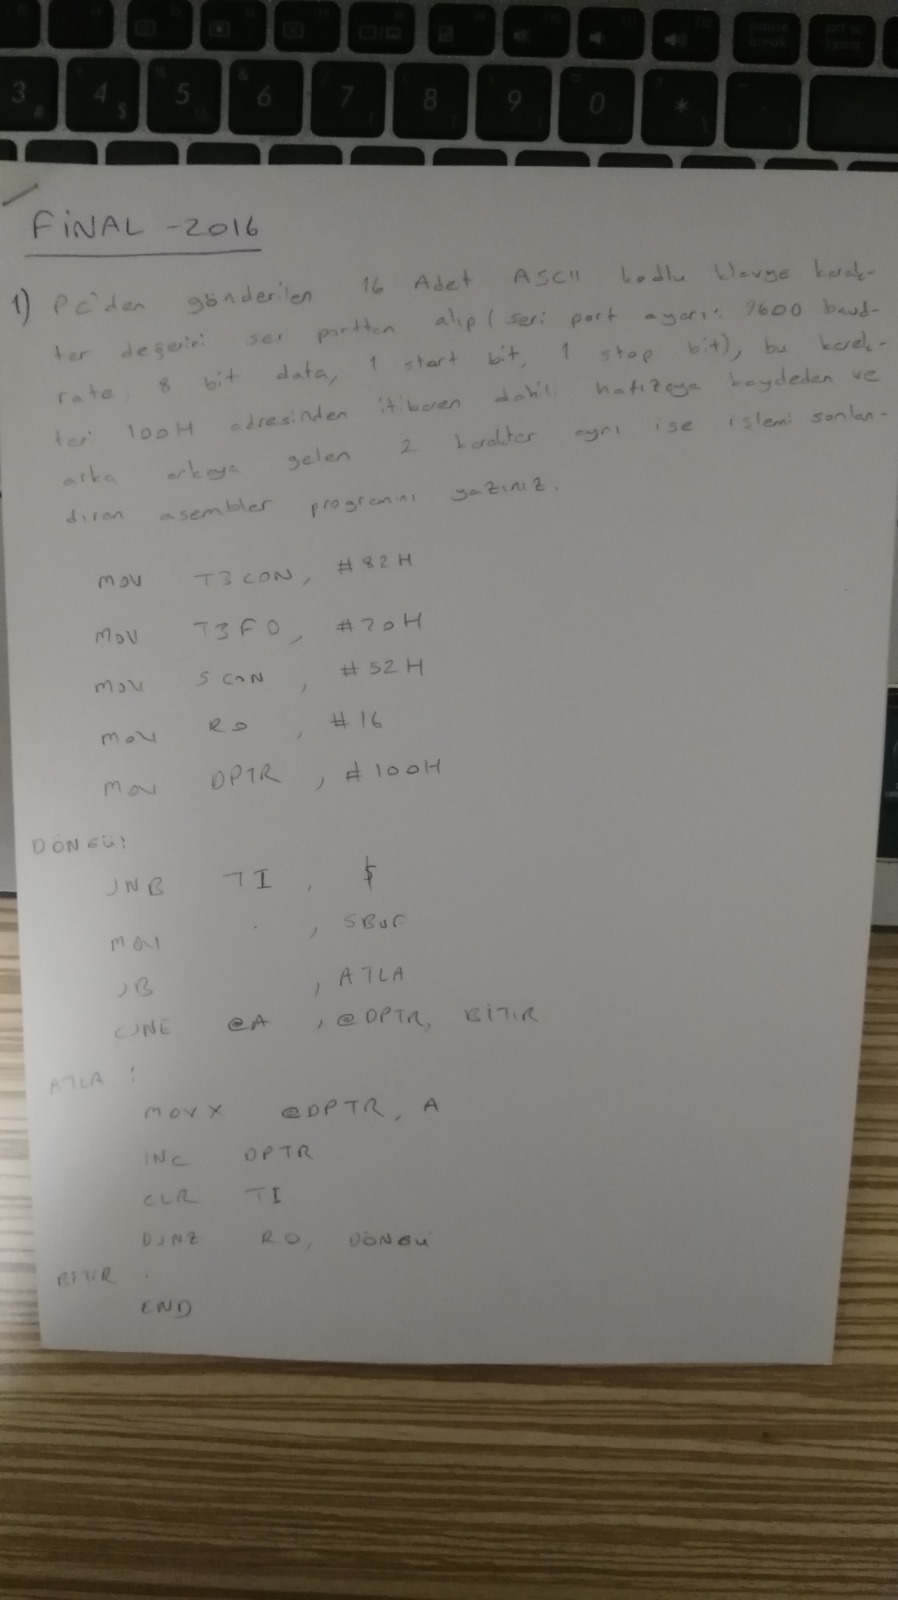 FİNAL -2016
1) PC'den gönderilen 16 Adet ASCII kodlu klavye karak-
ter değerini seri porttan alıp (seri port ayarı: 9600 baud-
rate, 8 bit data, 1 start bit, 1 stop bit), bu karak-
ter 100H adresinden itibaren dahili hafızaya kaydeden ve
arka arkaya gelen 2 karakter aynı ise işlemi sonlan-
dıran asembler programını yazınız.
MOV T3CON, #82H
MOV T3FD, #20H
MOV SCON, #52H
MOV R0, #16
MOV DPTR, #100H
DÖNGÜ:
JNB TI, $
MOV , SBUF
JB , ATLA
CJNE @A, @DPTR, BİTİR
ATLA:
MOVX @DPTR, A
INC DPTR
CLR TI
DJNZ R0, DÖNGÜ
BİTİR
END
3 4 $ 5 6 7 8 9 0 *
pause break
prt sc